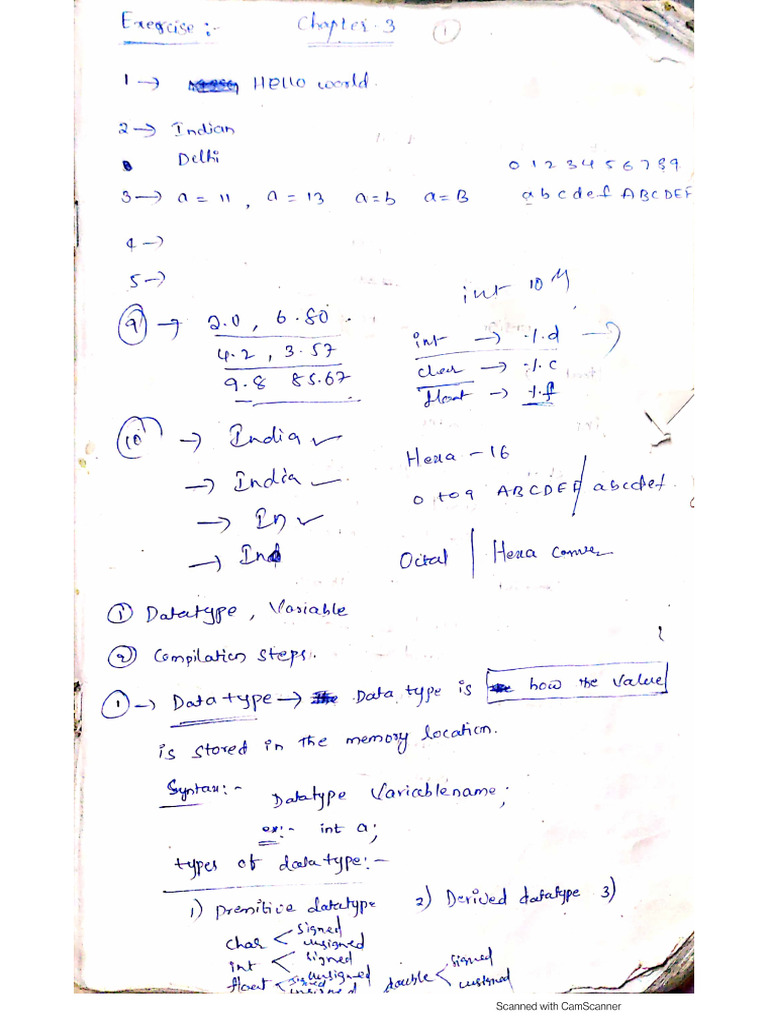 Exercise :- Chapter-3 1
1 → HEllo world.
2 → Indian
Delhi
0 1 2 3 4 5 6 7 8 9
3 → a = 11 , a = 13 a=b a=B a b c d e f A B C D E F
4 →
5 →
int 10
9 → 2.0 , 6.80
4.2 , 3.57
9.8 85.67
int → %d →
char → %c
float → %f
10 → India ✓
→ India ✓
→ In ✓
→ Ind
Hexa - 16
0 to 9 ABCDEF / abcdef.
Octal | Hexa conver
① Datatype , Variable
② Compilation steps.
① → Data type → Data type is how the value
is stored in the memory location.
Syntax :- Datatype Variablename;
ex:- int a;
types of datatype:-
1) Premitive datatype 2) Derived datatype 3)
char < signed
unsigned
int < signed
unsigned
float < signed
unsigned
double < signed
unsigned
Scanned with CamScanner